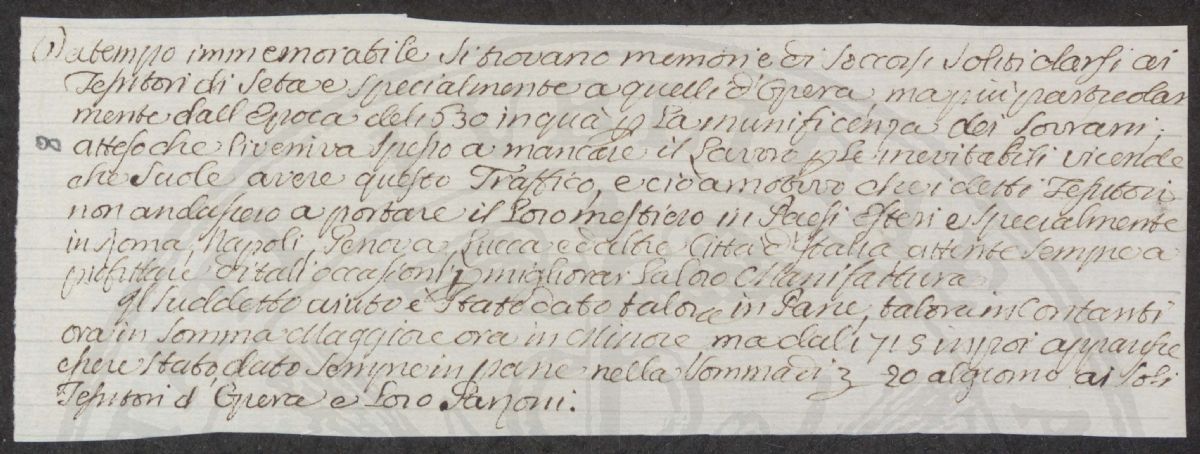 (1) a tempo immemorabile si trovano memorie di Soccorsi Soliti darsi ai
Tessitori di Seta e specialmente a quelli d'Opera, ma più particolar
mente dall'Epoca del 1630 in quà p La munificenza dei Sovrani,
8 atteso che li veniva spesso a mancare il Lavoro p Le inevitabili vicende
che Suole avere questo Traffico, e ciò a motivo che i detti Tessitori
non andassero a portare il Loro mestiero in Paesi Esteri e specialmente
in Roma, Napoli, Genova, Lucca ed altre Città d'Italia attente sempre a
profittare di tali occasioni p migliorar La loro Manifattura
Il suddetto aiuto è Stato dato talora in Pane, talora in Contanti
ora in Somma Maggiore ora in Minore ma dal 1715 in poi apparisce
che è Stato dato Sempre in pane nella Somma di 20 al giorno ai Soli
Tessitori d'Opera e Loro Garzoni.